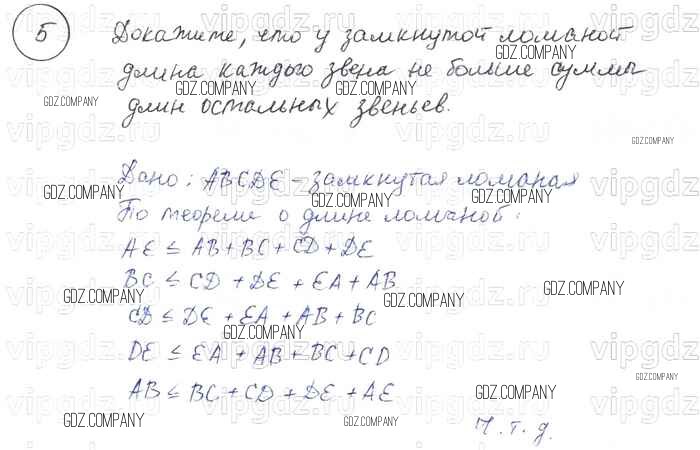 5 Докажите, что у замкнутой ломаной
длина каждого звена не больше суммы
длин остальных звеньев.
Дано: ABCDE - замкнутая ломаная
По теореме о длине ломаной:
AE ≤ AB + BC + CD + DE
BC ≤ CD + DE + EA + AB
CD ≤ DE + EA + AB + BC
DE ≤ EA + AB + BC + CD
AB ≤ BC + CD + DE + AE
Ч.т.д.
vipgdz.ru
GDZ.COMPANY